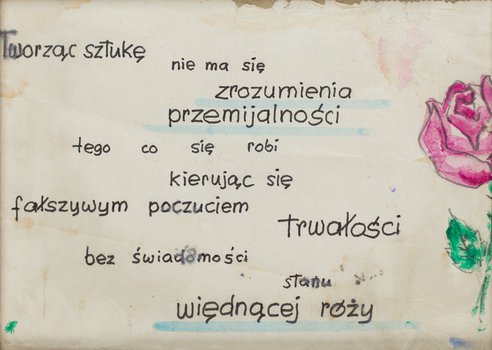 Tworząc sztukę
nie ma się
zrozumienia
przemijalności
tego co się robi
kierując się
fałszywym poczuciem
trwałości
bez świadomości
stanu
więdnącej róży